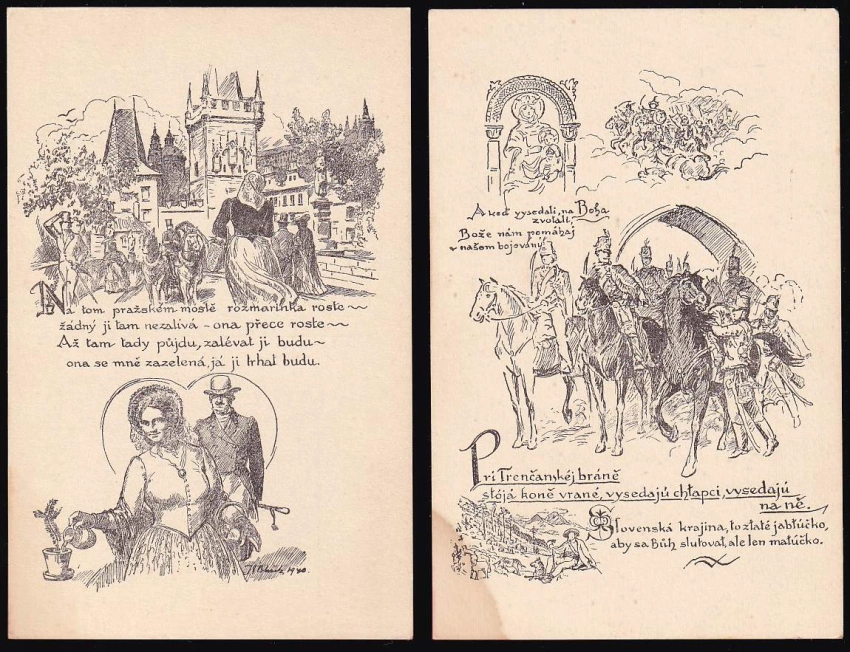 Na tom pražském mostě rozmarinka roste~
žádný ji tam nezalívá - ona přece roste~
Až tam tady půjdu, zalévat ji budu~
ona se mně zazelená, já ji trhat budu.
1940.
A keď vysedali, na Boha
zvolali,
Bože nám pomáhaj
v našem bojovaný
Pri Trenčanskéj bráně
stójá koně vrané, vysedajú chłapci, vysedajú
na ně.
Slovenská krajina, to złaté jabłúčko,
aby sa Bůh slutovał, ale len malúčko.